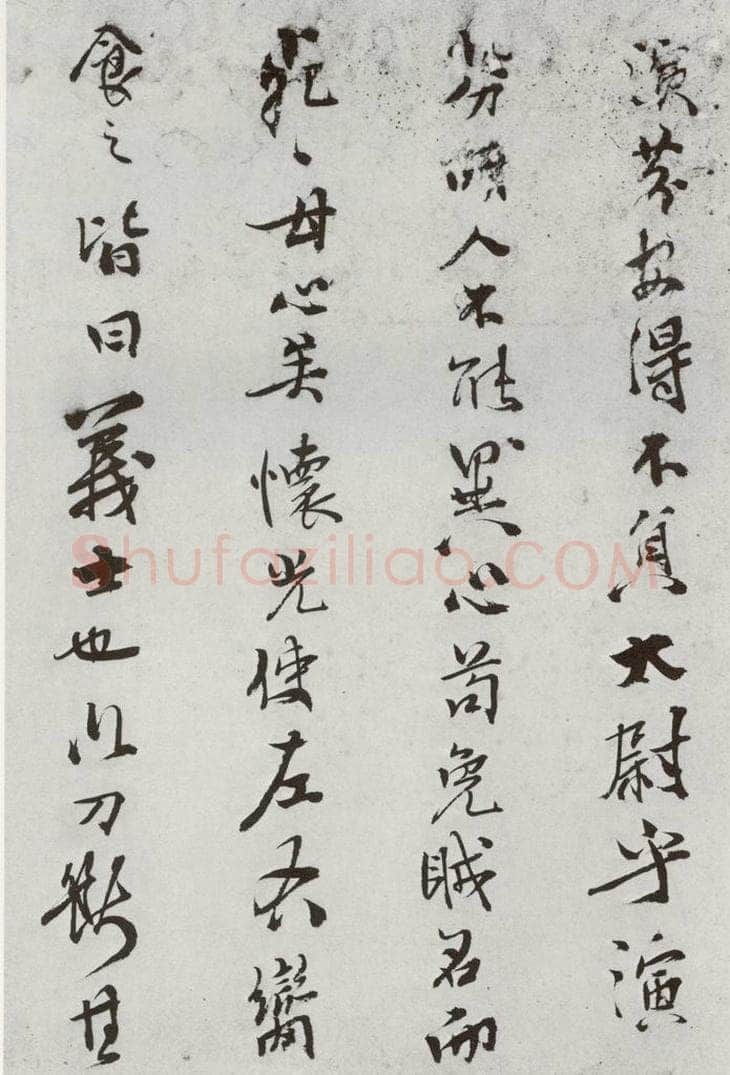 演芬安得不負太尉乎演
芬胡人不能異心苟免賊名而
死々甘心矣懷光使左右臠
食之皆曰義士也以刀斷其
Shufaziliao.COM